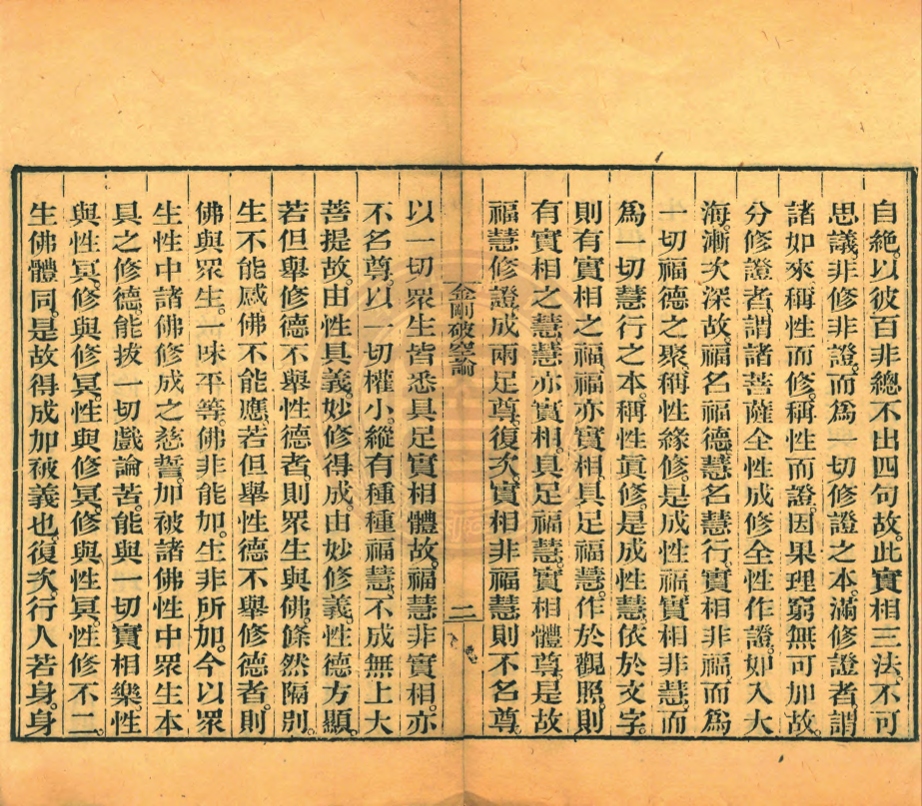 自絶。以彼百非總不出四句故。此實相三法。不可
思議。非修非證。而爲一切修證之本。滿修證者。謂
諸如來稱性而修。稱性而證。因果理窮。無可加故。
分修證者。謂諸菩薩全性成修。全性作證。如入大
海。漸次深故。福名福德。慧名慧行。實相非福。而爲
一切福德之聚。稱性緣修。是成性福。實相非慧。而
爲一切慧行之本。稱性眞修。是成性慧。依於文字。
則有實相之福。福亦實相。具足福慧。作於觀照。則
有實相之慧。慧亦實相。具足福慧。實相體尊。是故
福慧修證成兩足尊。復次。實相非福慧則不名尊。
金剛破空論
二
以一切眾生皆悉具足實相體故。福慧非實相。亦
不名尊。以一切權小。縱有種種福慧。不成無上大
菩提故。由性具義。妙修得成。由妙修義。性德方顯。
若但舉修德不舉性德者。則眾生與佛。條然隔別。
生不能感。佛不能應。若但舉性德不舉修德者。則
佛與眾生。一味平等。佛非能加。生非所加。今以眾
生性中諸佛修成之慈誓。加被諸佛性中眾生本
具之修德。能拔一切戲論苦。能與一切實相樂。性
與性冥。修與修冥。性與修冥。修與性冥。性修不二。
生佛體同。是故得成加被義也。復次。行人若身。身